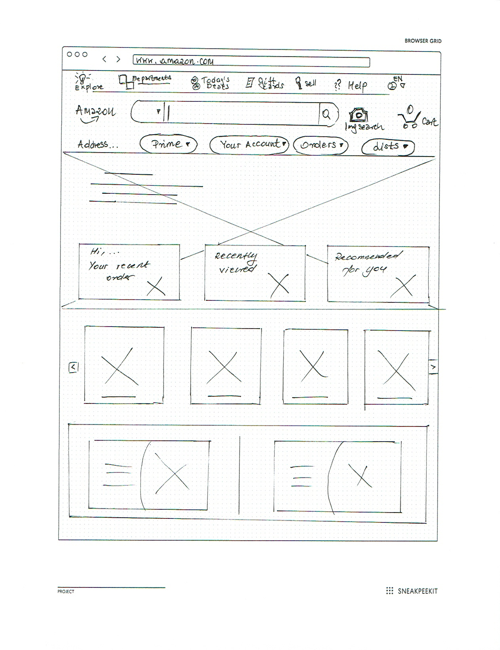 BROWSER GRID
www.amazon.com
Explore Departments Today's Deals Gift Cards Sell Help EN
Amazon Img search Cart
Address... Prime Your Account Orders Lists
Hi, ...
Your recent
order
Recently
viewed
Recomended
for you
PROJECT
SNEAKPEEKIT